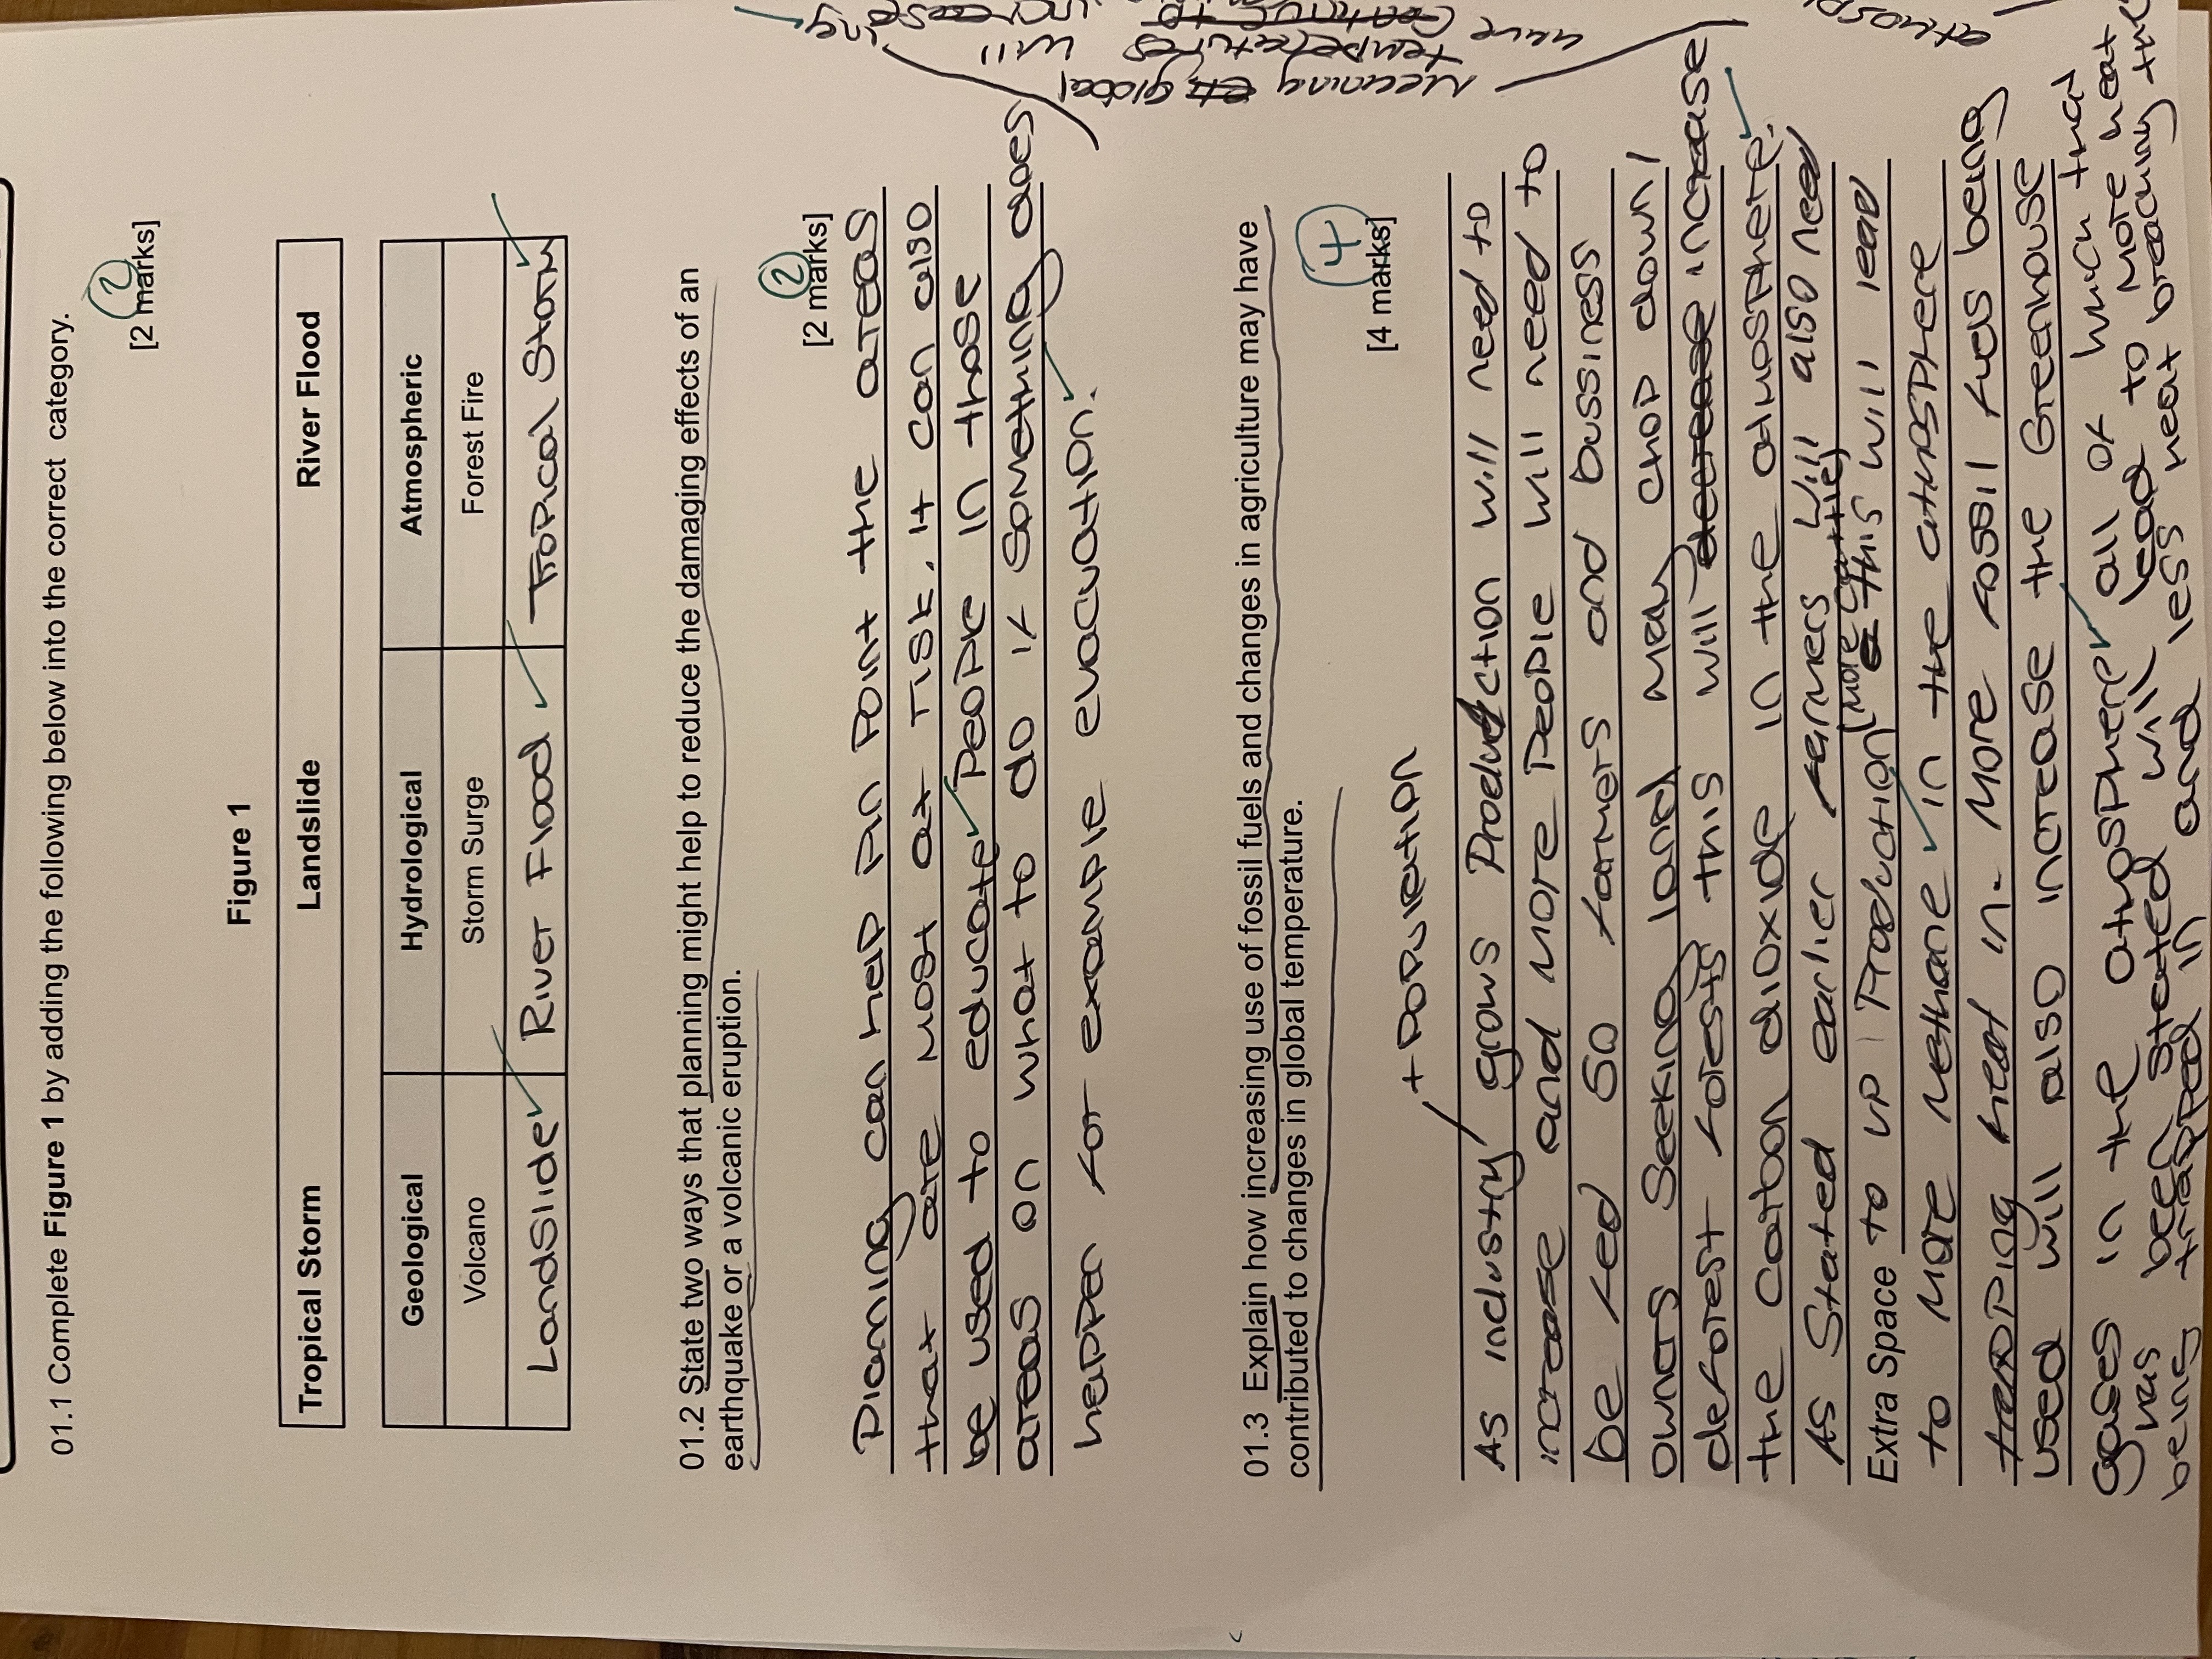 01.1 Complete Figure 1 by adding the following below into the correct category.
2
[2 marks]
Figure 1
Tropical Storm Landslide River Flood
Geological Hydrological Atmospheric
Volcano Storm Surge Forest Fire
Landslide River Flood Tropical Storm
01.2 State two ways that planning might help to reduce the damaging effects of an
earthquake or a volcanic eruption.
2
[2 marks]
Planning can help pin point the areas
that are most at risk. it can also
be used to educate People in those
areas on what to do if something does
happen for example evacuation.
01.3 Explain how increasing use of fossil fuels and changes in agriculture may have
contributed to changes in global temperature.
4
[4 marks]
+ Population
As industry grows Production will need to
increase and more People will need to
be fed so farmers and bussiness
owners seeking land may chop down/
deforest forests this will decrease increase
the carbon dioxide in the atmosphere.
As stated earlier farmers will also need
(more cattle)
Extra Space to up Production this will lead
to more methane in the atmosphere
trapping heat in. More fossil fuels being
used will also increase the Greenhouse
gases in the atmosphere all of which that
has been stated will lead to more heat
being trapped in and less heat breaching the
atmosp
Meaning global
temperatures will
have continue to increase
increasing